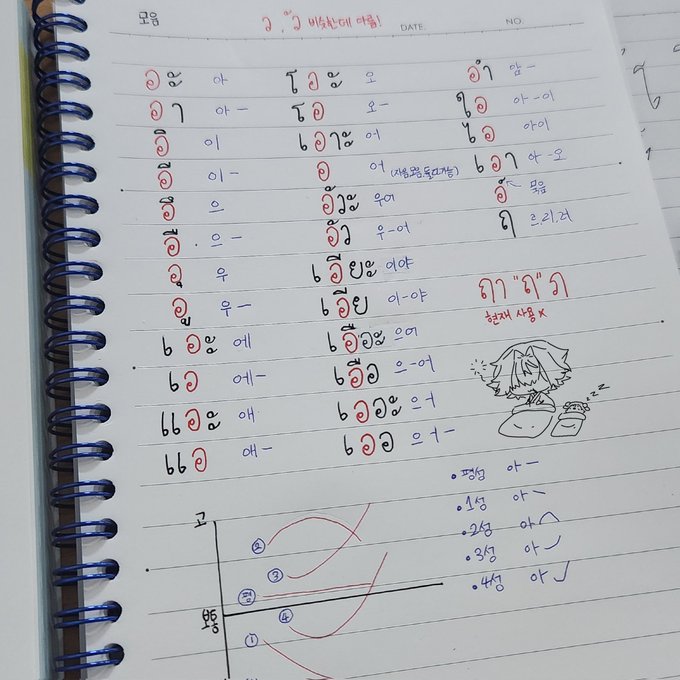 모음
อ, อั 비슷한데 다름!
DATE.
NO.
อะ 아
อา 아-
อิ 이
อี 이-
อึ 으
อือ 으-
อุ 우
อู 우-
เอะ 에
เอ 에-
แอะ 애
แอ 애-
โอะ 오
โอ 오-
เอาะ 어
อ 어 (자음,모음, 둘다가능)
อัวะ 우어
อัว 우-어
เอียะ 이야
เอีย 이-야
เอือะ 으어
เอือ 으-어
เออะ 으ㅓ
เออ 으ㅓ-
อำ 암-
ใอ 아-이
ไอ 아이
เอา 아-오
อ์ 묵음
ฤ 르,리,러
ฤๅ "ฦ" ฦๅ
현재 사용 X
zzz
•평성 아 –
•1성 아 \
•2성 아 ⌒
•3성 아 ✓
•4성 아 ✓
고
②
③
평
④
①